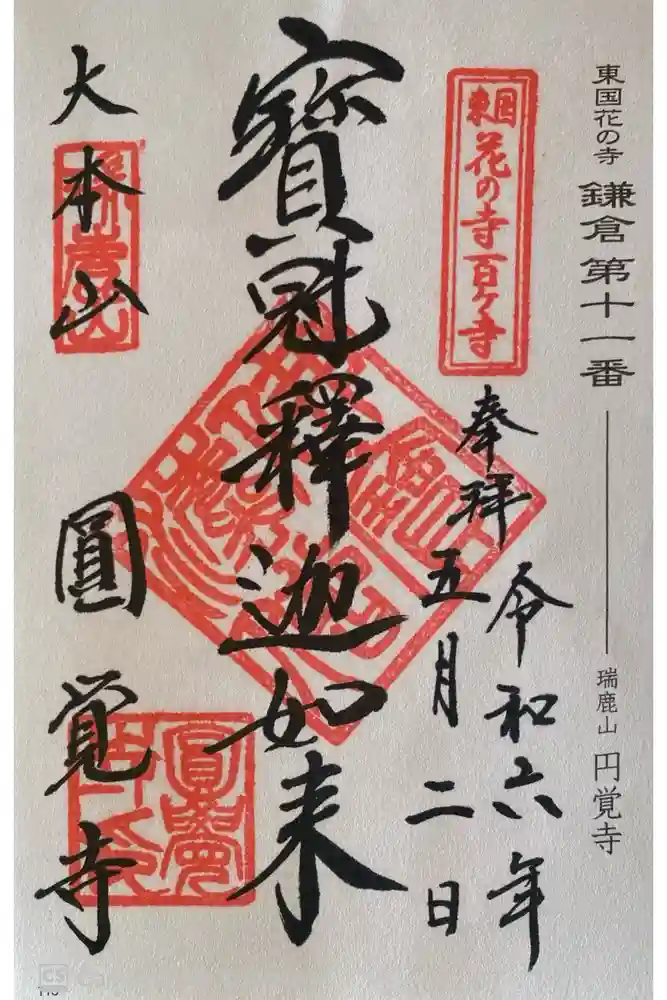 東国花の寺 鎌倉第十一番 瑞鹿山 円覚寺
東国
花の寺百ヶ寺
奉拝
令和六年
五月二日
寶冠釋迦如来
大本山
圓覚寺
CS